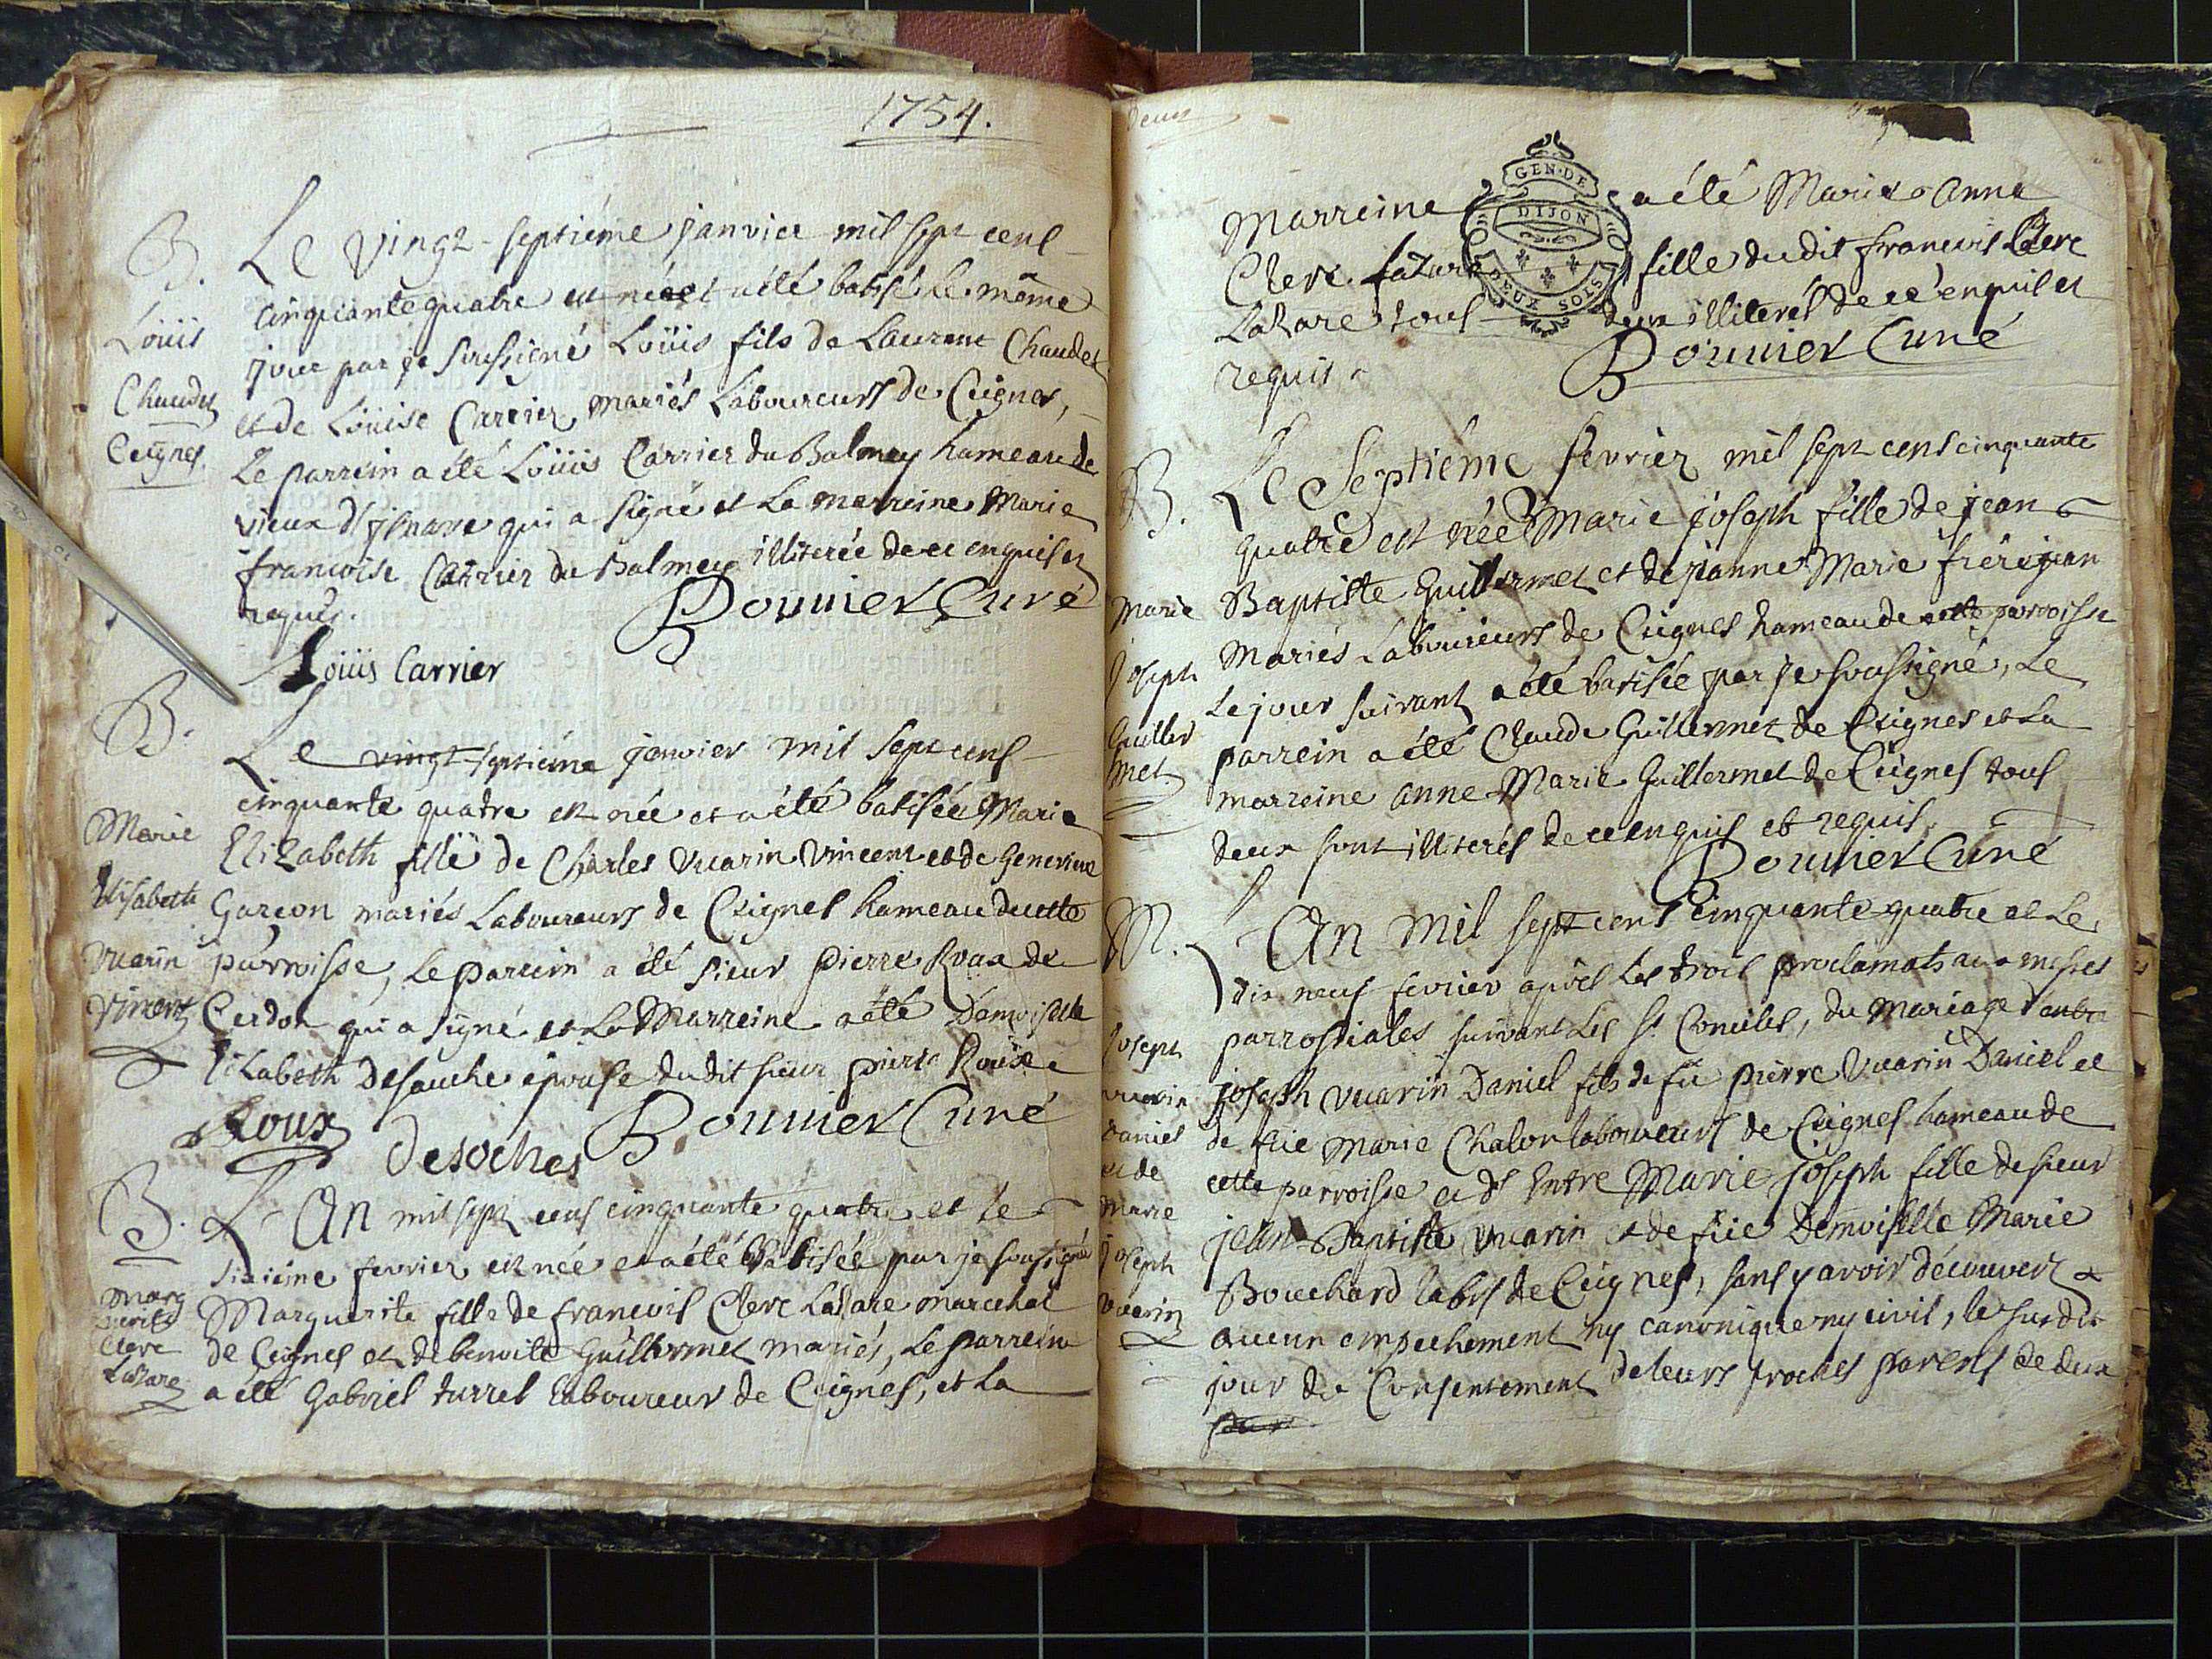 1754.
B.
Le vingt-septiéme janvier mil sept cens
cinquante quatre est né et a été batisé le même
jour par je soussigné Loüis fils de Laurent Chaudet
et de Loüise Carrier mariés Laboureurs de Ceignes,
Le parrein a été Loüis Carrier du Balmey hameau de
vieux d'jsnave qui a signé et La marreine Marie
francoise Carrier du Balmey illiterée de ce enquis et
requis.
Bonnier Curé
Loüis Carrier
Loüis
Chaudet
Ceignes.
B.
Le vingt-septiéme janvier mil sept cens
cinquante quatre est née et a été batisée Marie
Elizabeth fille de Charles Vuarin Vincent et de Genevieve
Garçon mariés Laboureurs de Ceignes hameau de cette
parroisse, Le parrein a été sieur pierre Roux de
Cerdon qui a signé et La Marreine a été Damoiselle
Elizabeth Desauche épouse du dit sieur pierre Roux
Roux
Desoches
Bonnier Curé
Marie
Elisabeth
Vuarin
Vincent
B.
L'An mil sept cens cinquante quatre et le
sixiéme fevrier est née et a été Batisée par je soussigné
Marguerite fille de francois Clerc Lazare marechal
de Ceignes et de benoite Guillermet mariés, Le parrein
a été Gabriel turrel laboureur de Ceignes, et La
Marg
uerite
Clerc
Lazare
Deux
GEN. DE
DIJON
DEUX SOLS
Marreine a été Marie Anne
Clerc Lazare fille du dit francois Clerc
Lazare tous deux illiterés de ce enquis et
requis
Bonnier Curé
B.
Le Septiéme fevrier mil sept cens cinquante
quatre est née Marie joseph fille de jean
Baptiste Guillermet et de janne Marie frérejean
Mariés Laboureurs de Ceignes hameau de cette parroisse
Le jour suivant a été batisée par je soussigné, Le
parrein a été Claude Guillermet de Ceignes et La
marreine anne Marie Guillermet de Ceignes tous
deux sont illiterés de ce enquis et requis.
Bonnier Curé
Marie
Joseph
Guiller
met
M.
L'An mil sept cens cinquante quatre et Le
dix neuf fevrier après Les trois proclamats aux messes
parrossiales suivant Les St. Conciles, du Mariage d'entre
joseph Vuarin Daniel fils de fû pierre Vuarin Daniel et
de fûe Marie Chalon laboureurs de Ceignes hameau de
cette parroisse et d'Entre Marie joseph fille de sieur
jean-Baptiste Vuarin et de fûe Demoiselle Marie
Bouchard labrs de Ceignes, sans y avoir découvert
aucun empechement ny canonique ny civil, le susdit
jour du Consentement de leurs proches parens de deux
Joseph
vuarin
daniel
et de
Marie
Joseph
Vuarin